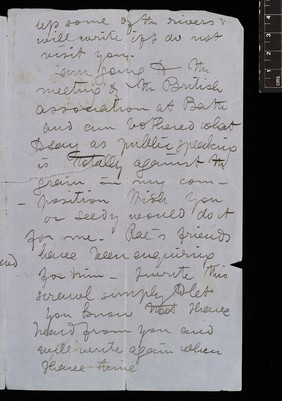 up some of the rivers &
will write if I do not
visit you.
I am going to the
meeting of the British
association at Bath
and am bothered what
to say as public speaking
is totally against the
grain in my com-
position Wish you
or seedy would do it
for me. Rae's friends
have been enquiring
for him - I write this
scrawl simply to let
you know that I have
heard from you and
will write again when
I have time